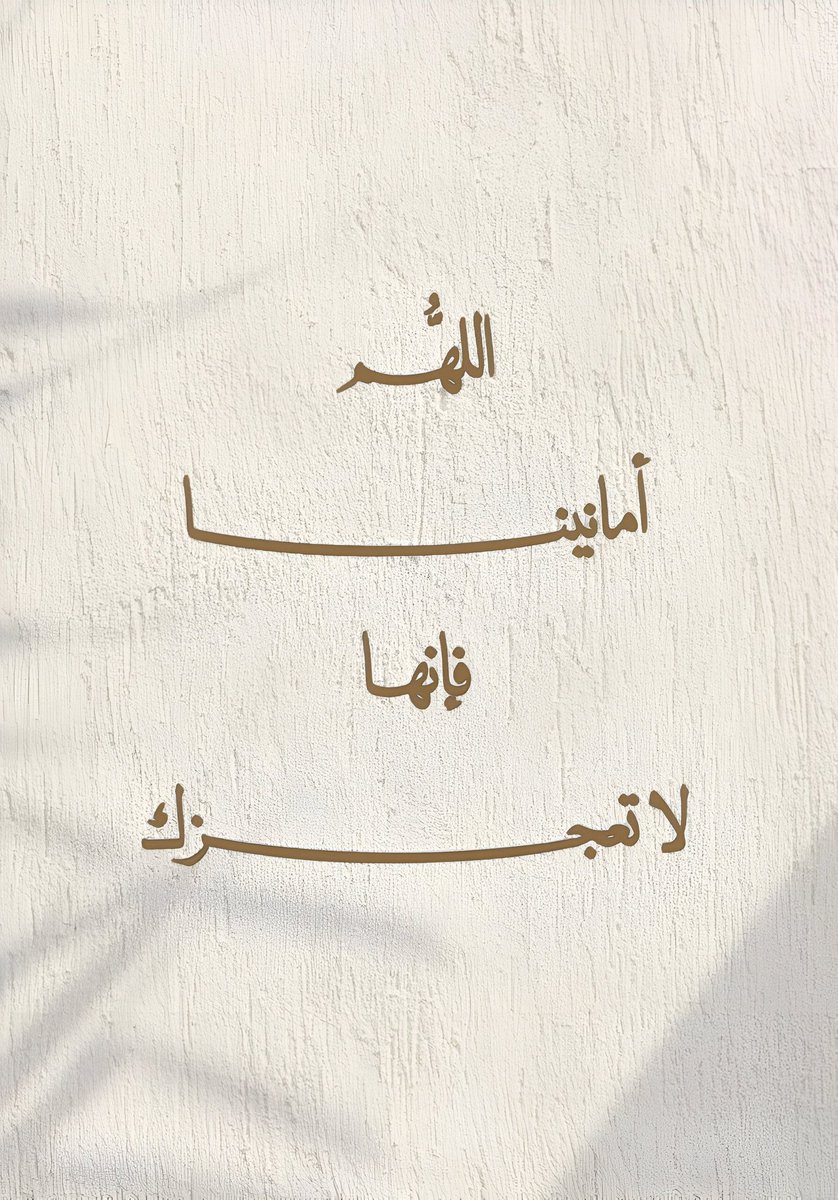 اللهُّم
أمانينا
فإنها
لا تعجزك